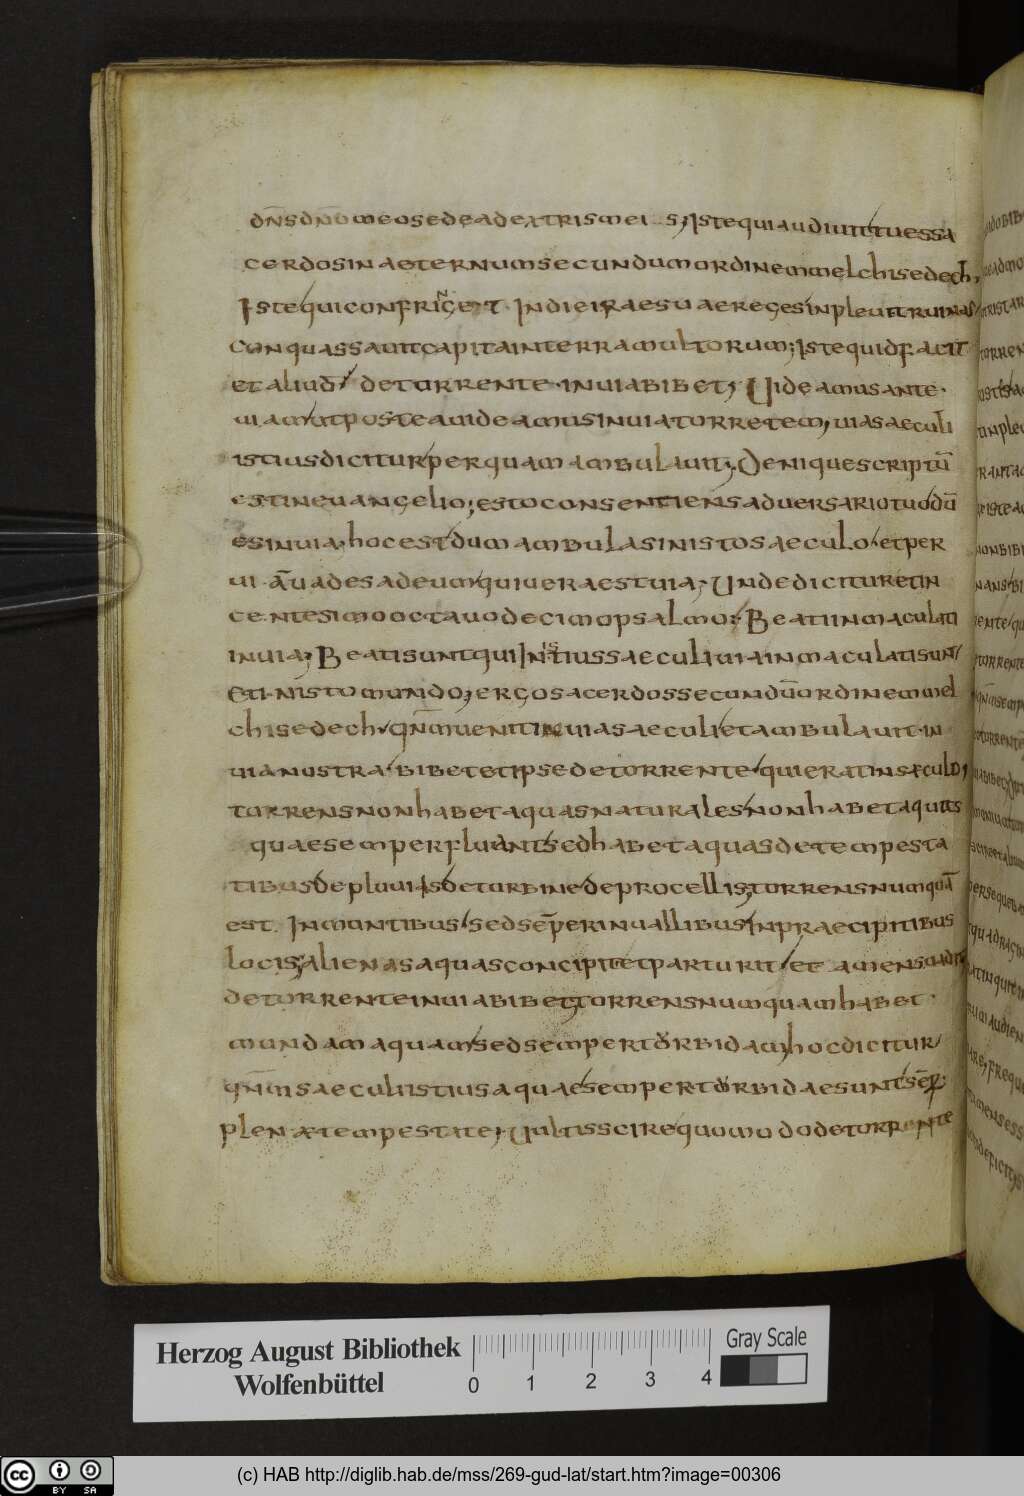 dn̄s dn̄o meo sede adextris mei s; Iste qui audiuit tu es sa
cerdos in aeternum secundum ordinem melchisedech,
Iste qui confringet In die irae suae reges inpleuit ruinas
conquassauit capita in terra multorum; Iste quid facit
et aliud detorrente in uia bibet; Uideamus ante
uiam ut postea uideamus in uia torretem, uia saeculi
istius dicitur perquam ambulauit; Denique scriptū
est in euangelio; esto consentiens aduersario tuo dū
es in uia, hoc est dum ambulas in isto saeculo et per
ui ā uades adeum qui uera est uia; Unde dicitur et in
centesimo octauo decimo psalmo; Beati inmaculati
in uia; Beati sunt qui In istius saeculi uia inmaculati sunt
Et in isto mundo; ergo sacerdos secundū ordinem mel
chisedech qn̄m uenit in uia saeculi et ambulauit in
uia nostra bibet et ipse detorrente qui erat in sęculo,
torrens non habet aquas naturales non habet aquas
quae semper fluant sed habet aquas de tempesta
tibus de pluuiis de turbine de procellis; torrens numquā
est In montibus sed sēper in uallibus In praecipitibus
locis, alienas aquas concipit et parturit et amens cadit
detorrente in uia bibet; torrens numquam habet
mundam aquam sed semper torbidam hoc dicitur
qn̄m saeculi istius aquae semper torbidae sunt sēp
plenae tempestate; Uultis scire quomodo detorrente
Herzog August Bibliothek
Wolfenbüttel
0 1 2 3 4
Gray Scale
cc BY SA
(c) HAB http://diglib.hab.de/mss/269-gud-lat/start.htm?image=00306